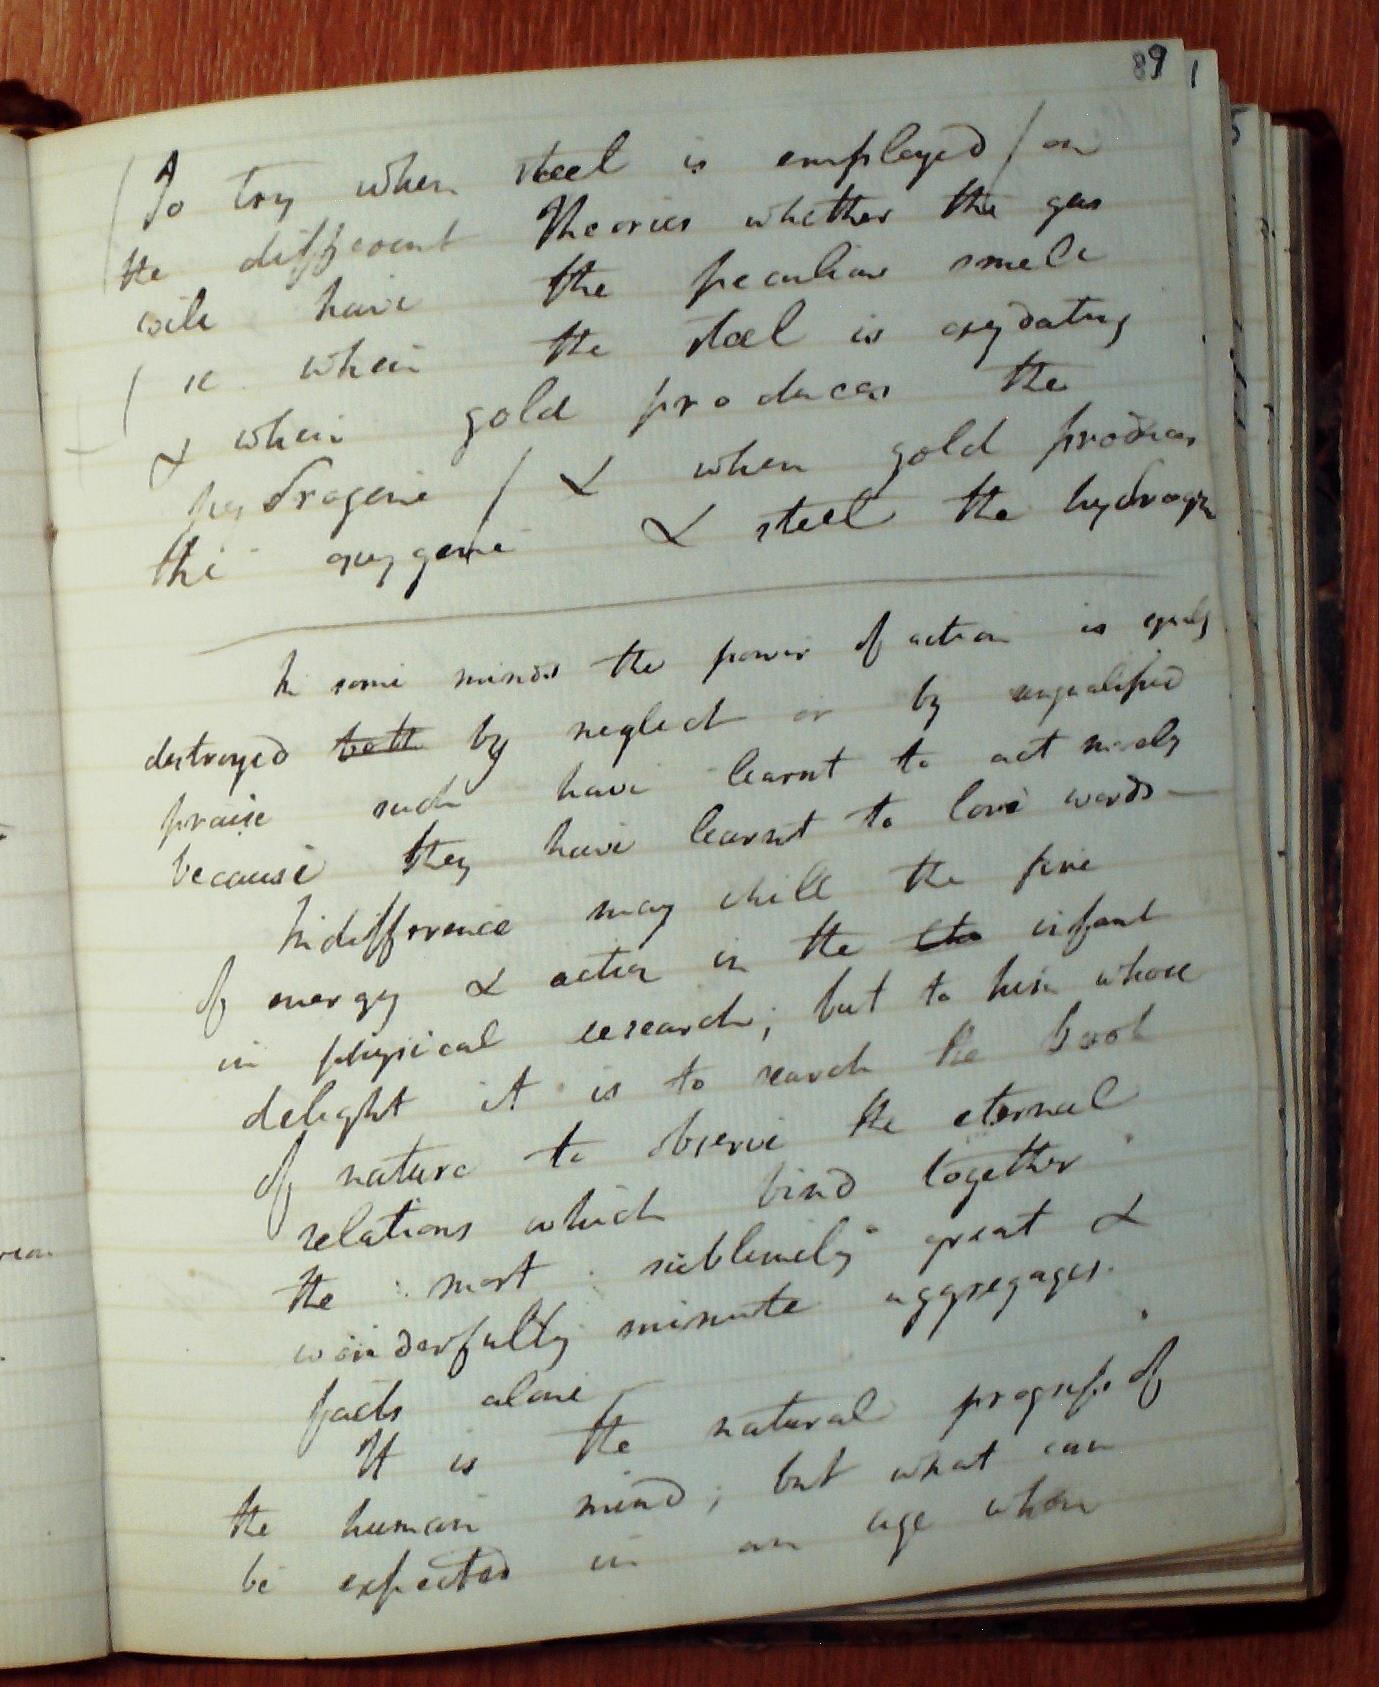 89
1
(To try when steel is employed / on
the different Theories whether the gas
will have the peculiar smell
( ie when the steel is oxydating
& when gold produces the
hydrogene / & when gold produces
the oxygene & steel the hydrogn
In some minds the power of action is equaly
destroyed both by neglect or by unqualified
praise such have learnt to act merely
because they have learnt to love words –
Indifference may chill the fire
of energy & action in the infant
in physical research; but to him whose
delight it is to search the book
of nature to observe the eternal
relations which bind together
the most sublimely great &
wonderfully minute aggregages.
facts alone
It is the natural progress of
the human mind; but what can
be expected in an age when